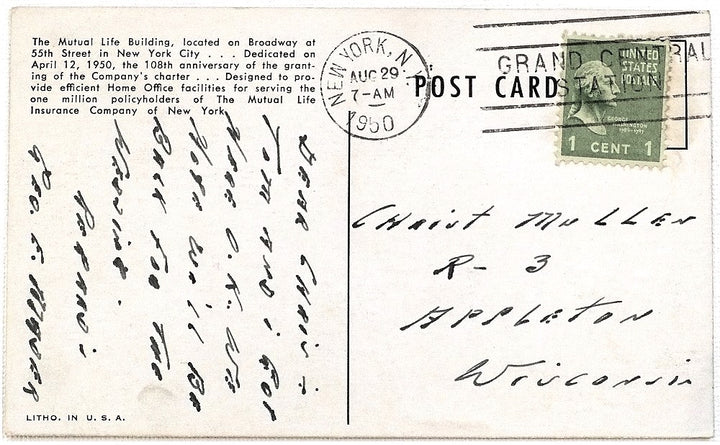 The Mutual Life Building, located on Broadway at
55th Street in New York City . . . Dedicated on
April 12, 1950, the 108th anniversary of the grant-
ing of the Company's charter . . . Designed to pro-
vide efficient Home Office facilities for serving the
one million policyholders of The Mutual Life
Insurance Company of New York
DEAR CHRIST :-
TOM AND I GOT
HERE O.K. WE
WILL BE
BACK FOR THE
GEO. F.
LITHO. IN U. S. A.
NEW YORK, N.Y.
AUG 29
7-AM
1950
GRAND CENTRAL
STATION
POST CARD
UNITED
STATES
POSTAGE
GEORGE
WASHINGTON
1789-1797
1 CENT 1
CHRIST MULLEN
R- 3
APPLETON
WISCONSIN